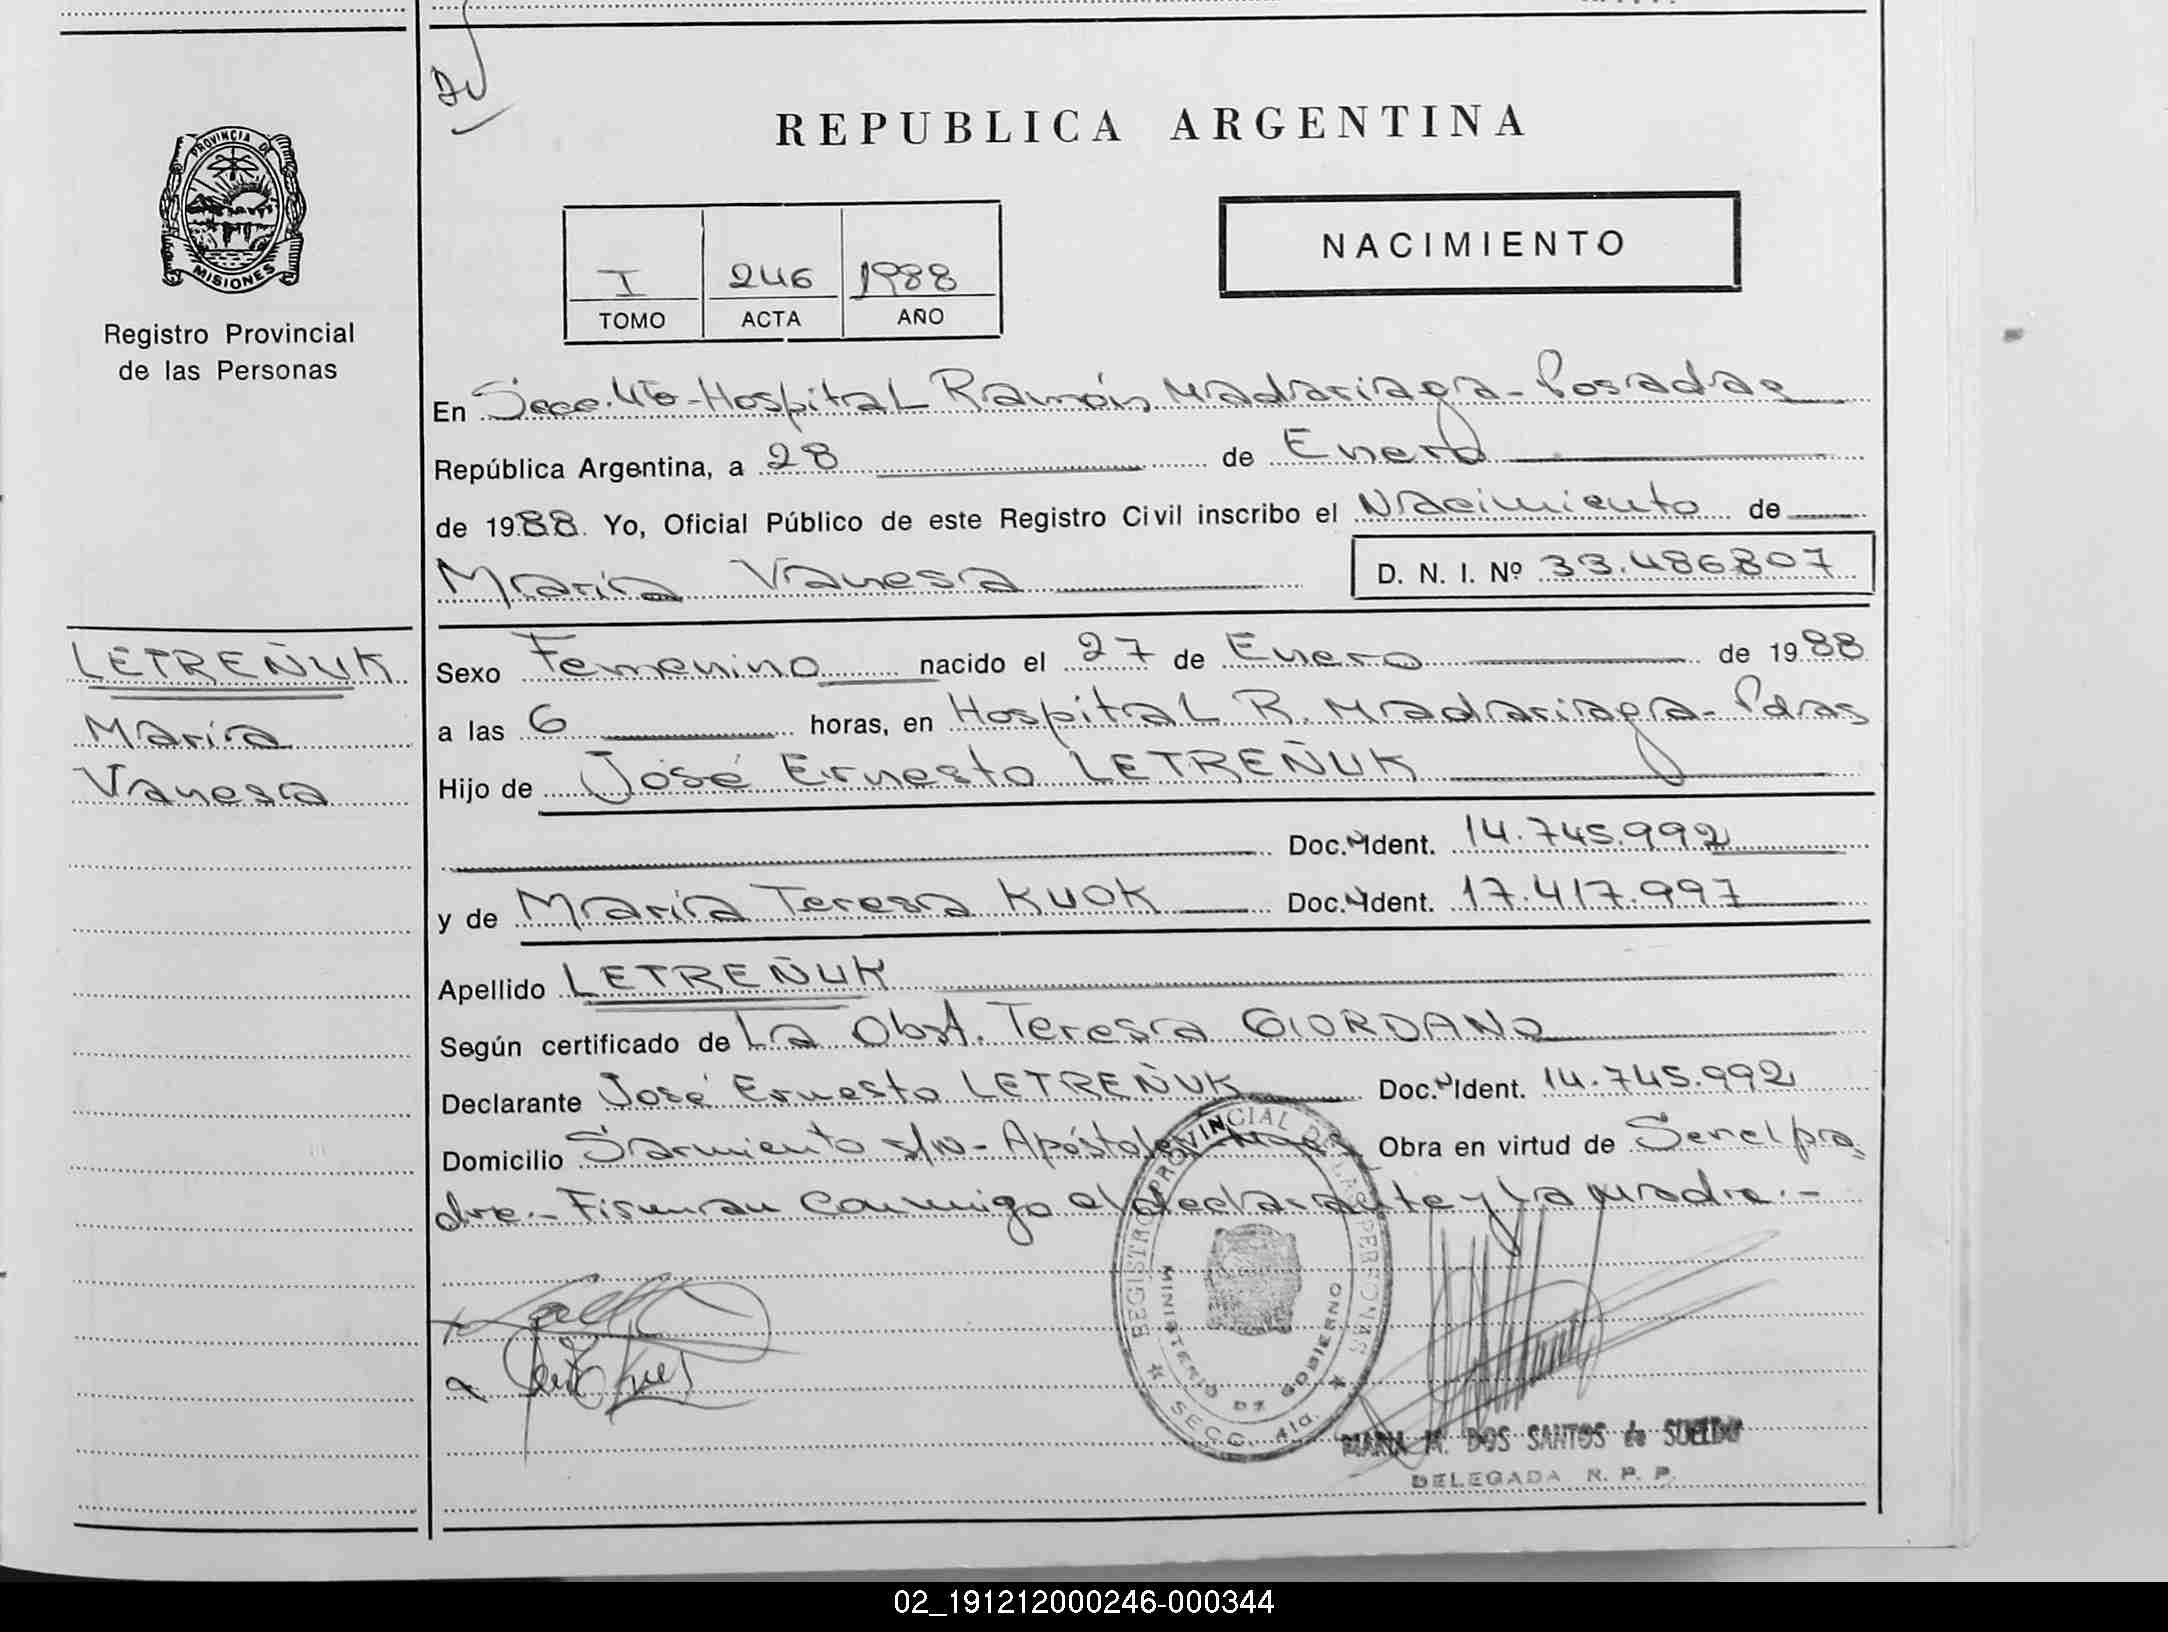 REPUBLICA ARGENTINA
PROVINCIA DE MISIONES
Registro Provincial
de las Personas
I 246 1988
TOMO ACTA AÑO
NACIMIENTO
En Secc. 4ta - Hospital Ramón Madariaga - Posadas
República Argentina, a 28 de Enero
de 1988. Yo, Oficial Público de este Registro Civil inscribo el Nacimiento de
María Vanesa D. N. I. Nº 33.486807
LETREÑUK
María
Vanesa
Sexo Femenino nacido el 27 de Enero de 1988
a las 6 horas, en Hospital R. Madariaga - Pdas
Hijo de José Ernesto LETREÑUK
Doc. Ident. 14.745.992
y de María Teresa KUOK Doc. Ident. 17.417.997
Apellido LETREÑUK
Según certificado de La Obst. Teresa GIORDANO
Declarante José Ernesto LETREÑUK Doc. Ident. 14.745.992
Domicilio Sarmiento s/n - Apóstoles Obra en virtud de Ser el pa
dre.- Firman conmigo el declarante y la madre.-
REGISTRO PROVINCIAL DE LAS PERSONAS
MINISTERIO DE GOBIERNO
SECC. 4ta.
MARIA M. DOS SANTOS de SUELDO
DELEGADA R. P. P.
02_191212000246-000344